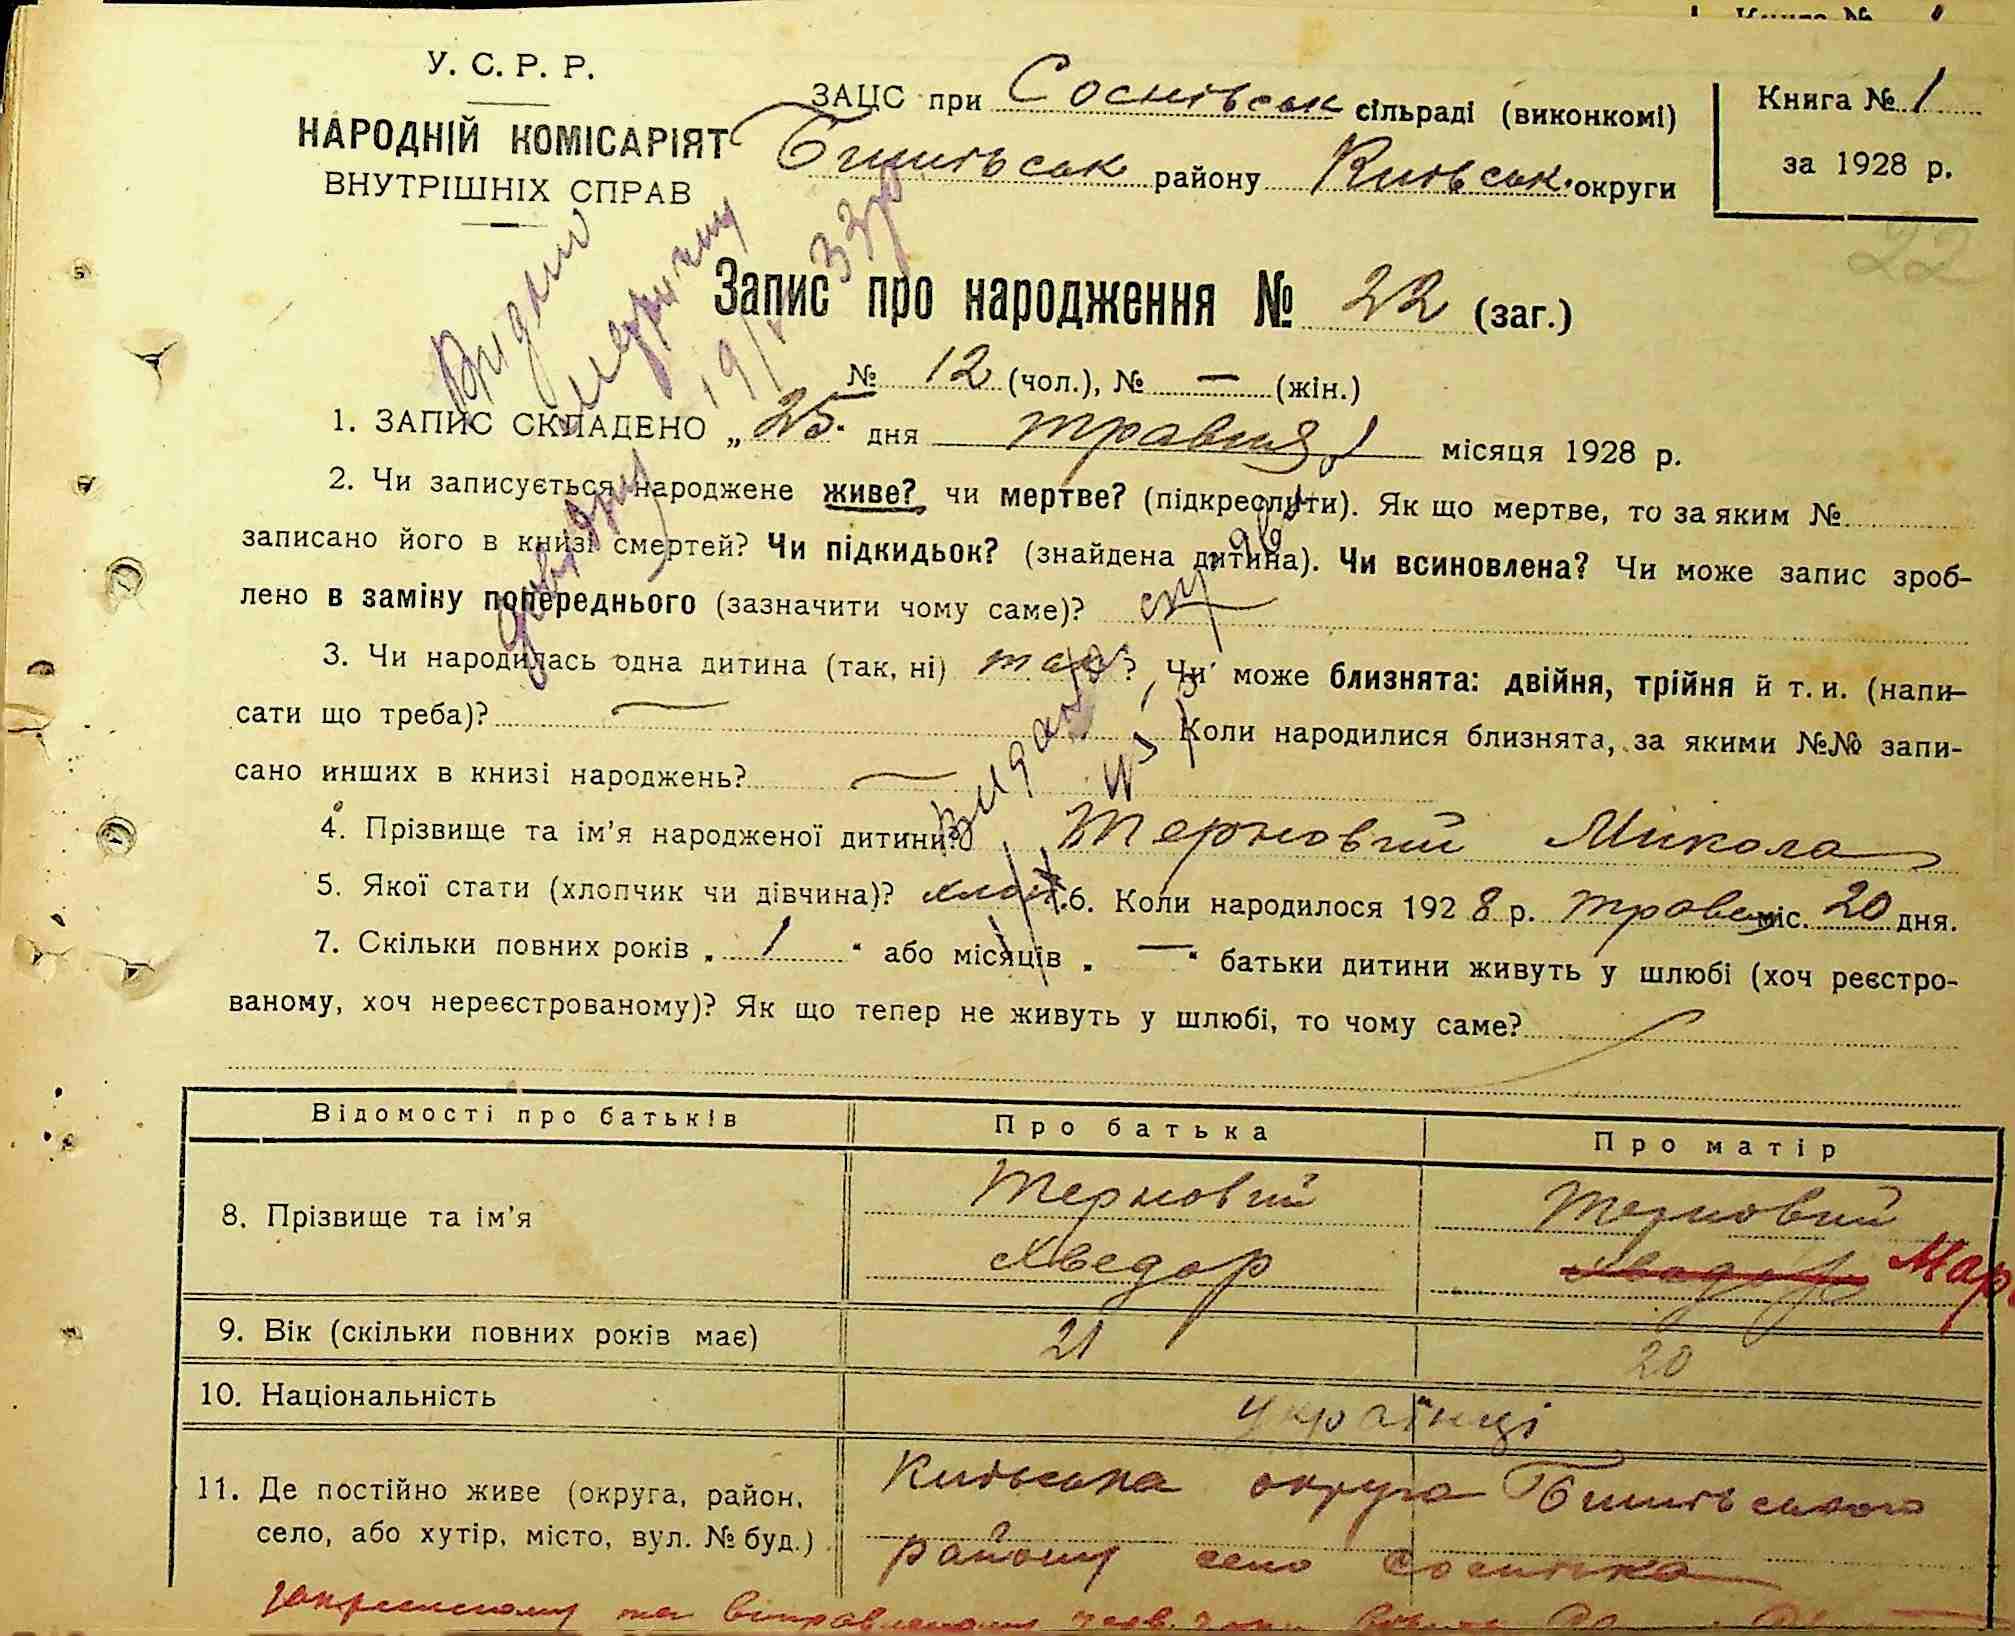 Книга №
У. С. Р. Р.
НАРОДНІЙ КОМІСАРІЯТ
ВНУТРІШНІХ СПРАВ
ЗАЦС при Соснівськ сільраді (виконкомі)
Бишівськ району Київськ. округи
Книга № 1
за 1928 р.
22
Запис про народження № 22 (заг.)
№ 12 (чол.), № — (жін.)
Видано
метричну
довідку
19/ 33 р
1. ЗАПИС СКЛАДЕНО „ 25. дня травня місяця 1928 р.
2. Чи записується народжене живе? чи мертве? (підкреслити). Як що мертве, то за яким №
записано його в книзі смертей? Чи підкидьок? (знайдена дитина). Чи всиновлена? Чи може запис зроб-
лено в заміну попереднього (зазначити чому саме)? —
3. Чи народилась одна дитина (так, ні) так ? Чи може близнята: двійня, трійня й т. и. (напи-
сати що треба)? — Коли народилися близнята, за якими №№ запи-
сано инших в книзі народжень? —
4. Прізвище та ім'я народженої дитини? Терновий Микола
5. Якої стати (хлопчик чи дівчина)? хлоп. 6. Коли народилося 192 8 р. травня міс. 20 дня.
7. Скільки повних років „ 1 “ або місяців „ — “ батьки дитини живуть у шлюбі (хоч реєстро-
ваному, хоч нереєстрованому)? Як що тепер не живуть у шлюбі, то чому саме?
Відомості про батьків Про батька Про матір
8. Прізвище та ім'я Терновий Терновий
Хведор Хведор Мар
9. Вік (скільки повних років має) 21 20
10. Національність Українці
11. Де постійно живе (округа, район, Київська округа Бишівського
село, або хутір, місто, вул. № буд.) району село Соснівка